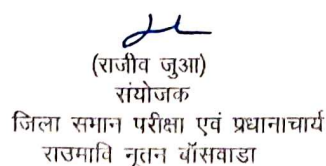 (राजीव जुआ)
संयोजक
जिला समान परीक्षा एवं प्रधानाचार्य
राउमावि नूतन बाँसवाडा